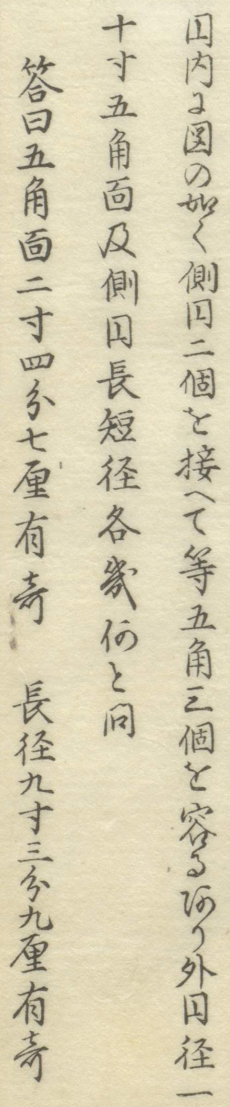 円内に図の如く側円二個を接へて等五角三個を容るあり外円径一
十寸五角面及側円長短径各幾何と問
答曰五角面二寸四分七厘有奇　長径九寸三分九厘有奇